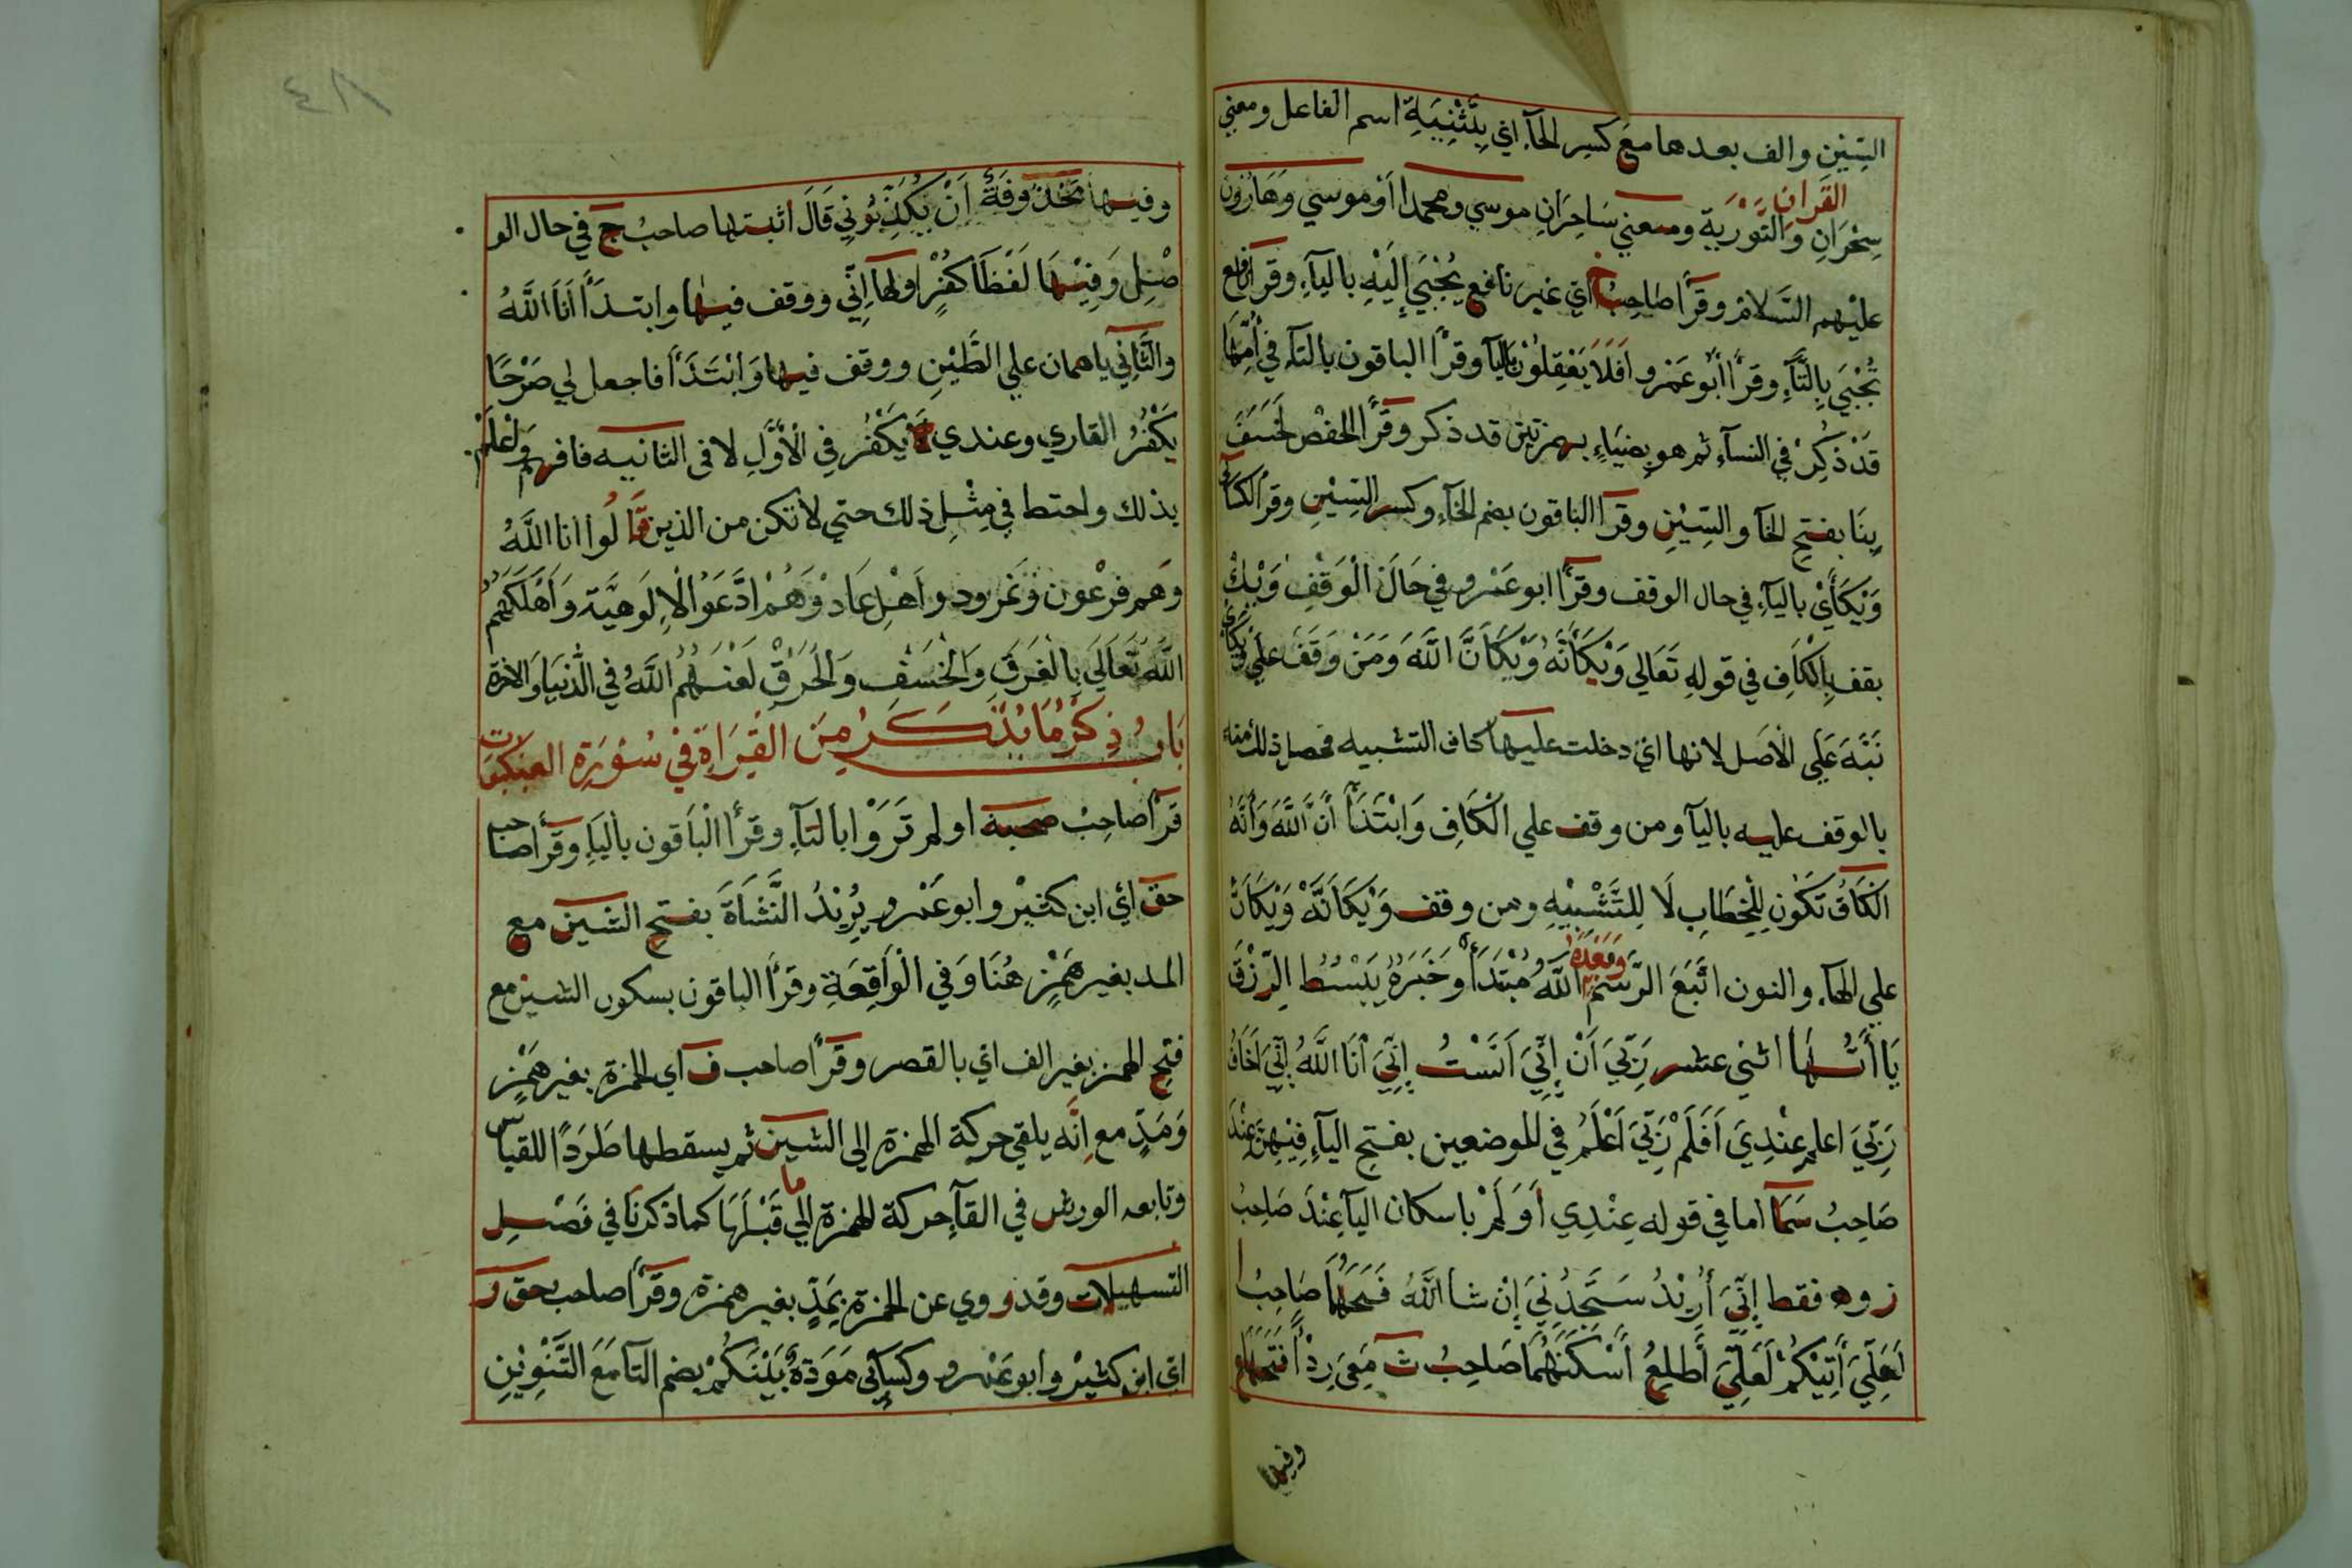 السِّيْنِ والف بعدها مع كسر الحآء اي بِتَثْنِيَةِ اسم الفاعل ومعني
القران
سِحْرَانِ وَالتَّوْرٰيةِ ومعني سَاحِرَانِ موسي ومحمدا اَوْ موسي وَهَارُون
عليْهم السَّلام وقرأ صاحِبُ خ اي غير نافع يُجْبَي إِلَيْهِ باليآءِ وقرأ نافع
تُجْبَي بِالتَّآءِ وقرأ أَبُو عَمْرو اَفَلَا يَعْقِلُوْنَ باليآ وقرأ الباقون بالتآء في أُمِّهَا
قَدْ ذُكِرْ في النسآءِ ثم هو بِضِيَاءٍ بهمزتين قد ذكر وقرأ الحفص لَخَسَفَ
بِنَا بفتحِ الخآ والسِّيْنِ وقرأ الباقون بضم الخآءِ وكسر السِّيْنِ وقرأ الكسآئي
وَيْكَأَيْ باليآءِ في حال الوقف وقرأ ابو عَمْرو في حَالَ الْوَقْفِ وَيْكَ
بقف بِالْكَافِ في قولهِ تَعَالي وَيْكَأَنَّهُ وَيْكَاَنَّ اللَّهَ وَمَنْ وَقَفَ علي وَيْكَاَيْ
نَبَّهَ عَلَي الْاَصَل لانها اي دخلت عليها كاف التشبيه فحصل ذلك منه
بالوقف عليه باليآ ومن وقف علي الْكَافِ وَابْتَدَأَ أَنَّ اللَّهَ وَأَنَّهُ
الْكَافُ تَكُوْن لِلْخِطَابِ لَا لِلتَّشْبِيْهِ ومن وقف وَيْكَاَنَّهُ وَيْكَاَنَّ
وَبَعْدَهُ
علي الهآءِ والنون اتَّبَعَ الرَّسْمَ اللَّهُ مُبْتَدَأٌ وَخَبَرُهُ يَبْسُطُ الرِّزْقَ
يَا أَتُهَا اثني عشر رَبِّيَ اَنْ إِنِّيَ اَنَسْتُ إِنِّيَ أَنَا اللَّهُ إِنِّيَ اَخَافُ
رَبِّيَ اعلم عِنْدِيَ اَفَلَمْ رَبِّيَ اَعْلَمُ في الموضعين بفتح اليآءِ فِيْهِنَّ عِنْدَ
صَاحِبُ سَمَا اما في قوله عِنْدِي أَوَلَمْ باسكان اليآ عِنْدَ صَاحِبُ
ز وه فقط إِنِّيَ أُرِيْدُ سَتَجِدُنِيَ إِنْ شا اللَّهُ فَتَحَهُمَا صَاحِبُ ا
لَعَلِّيَ أَتِيْكُمْ لَعَلِّيَ أَطَّلِعُ أَسْكَنَهُمَا صَاحِبُ ث مَعِيَ رِدْأً فَتَحَهَا ع
وفيها
٤١١
وفيها مَحْذُوفَةٌ اَنْ يُكَذِّبُونِي قَالَ أَثْبتها صاحبُ ج في حال الو
صْلِ وَفِيْهَا لَفْظَا كُفْرٍ اولها إِنِّي ووقف فيها وابتدَأَ أَنَا اللَّهُ
والثَّانِي ياهمان علي الطِّيْنِ ووقف فيها وَابْتَدَأَ فاجعل لي صَرْحًا
يَكْفُرُ القاري وعندي لَا يَكْفُر فِي الْاَوَّلِ لا في الثانيه فافهم وَاعْلَمْ
بذلك واحتط فِي مِثْلِ ذلك حتي لا تكن من الذين قَالُوا انا اللَّهُ
وَهم فِرْعَون وَنَمْرود و اَهْلِ عَاد وَهُمْ ادَّعَوُا الْاِلَوهِيَّة وَاَهْلَكَهُم
اللَّهُ تَعَالَي بالغَرَقِ وَالْخَسَفِ وَالْحَرَقْ لَعْنَهُمُ اللَّهُ في الدُّنْيَا وَالاخرة
بَابُ ذِكْرُ مَا يُذْكَرُ مِنَ القِرَاةِ فِي سُوْرَةِ العنكبوت
قرأ صَاحِبُ صحبة اولم تَرَوْا بالتآءِ وقرأ الْبَاقون باليَآءِ وقرأ صاحب
حق اي ابن كثيْر وابو عَمْرو يُرِيْدُ النَّشَاَةَ بفتحِ الشين مع
المد بغير هَمْزٍ هُنَا وَفِي الْوَاقِعَةِ وقرأ الباقون بسكون الشين مع
فتحِ الهمز بغير الف اي بالقصر وقرأ صاحب ف اي الحمزة بغير هَمْزٍ
وَمَدٍّ مع اِنَّه يلقي حركة الهمزة الي الشين ثم يسقطها طَرَدًا للقياس
ما
وتابعه الورش في القآءِ حركة الهمزة الي قَبْلَهَا كما ذكرنَا في فَصْلِ
التسهيلات وقد روي عن الحمزة بمَدٍّ بغير همزة وقرأ صاحب حق ر
اي ابن كثيْر وابو عَمْرو وكسآئي مَوَدَّةٌ بَيْنَكُمْ بضم التآ مَعَ التَّنْوِيْنِ